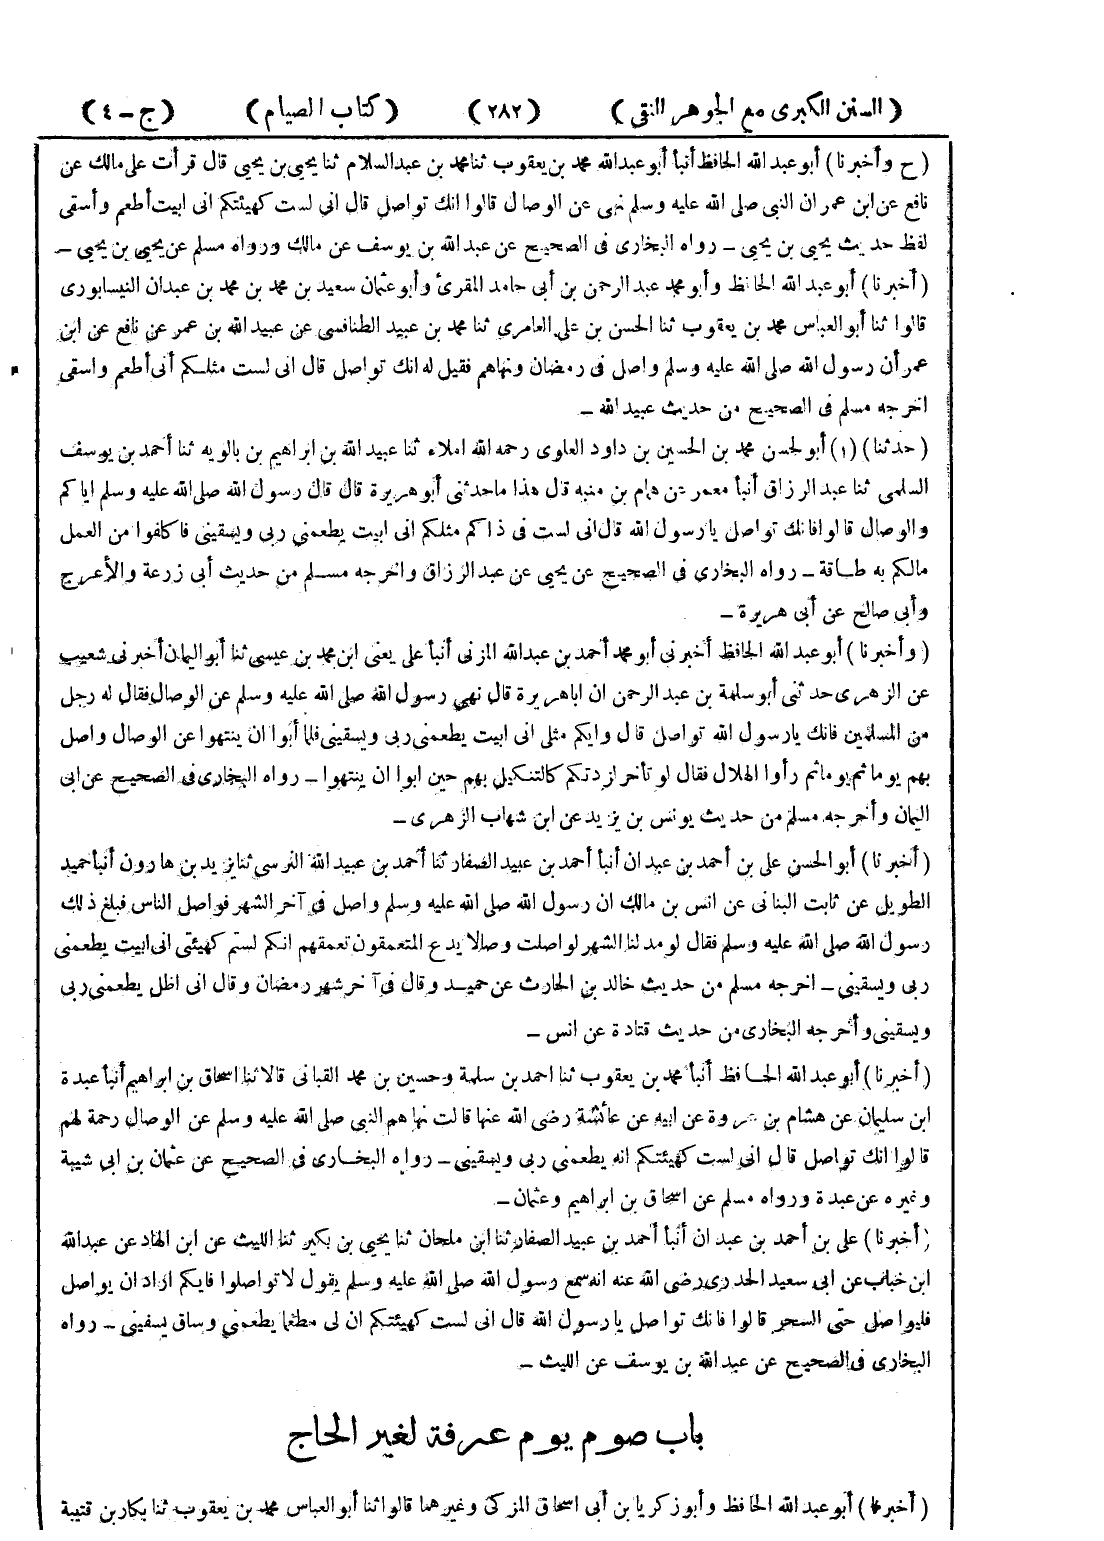 ( السنن الكبرى مع الجوهر النقى ) ( ٢٨٢ ) ( كتاب الصيام ) ( ج – ٤ )
( ح وأخبرنا ) أبو عبد الله الحافظ أنبأ أبو عبدالله محمد بن يعقوب ثنا محمد بن عبدالسلام ثنا يحيى بن يحيى قال قرأت على مالك عن
نافع عن ابن عمر ان النبى صلى الله عليه وسلم نهى عن الوصال قالوا انك تواصل قال انى لست كهيئتكم انى ابيت أطعم وأسقى
لفظ حديث يحيى بن يحيى – رواه البخارى فى الصحيح عن عبدالله بن يوسف عن مالك ورواه مسلم عن يحيى بن يحيى –
( أخبرنا ) أبو عبد الله الحافظ وأبو محمد عبد الرحمن بن أبى حامد المقرئ وأبو عثمان سعيد بن محمد بن محمد بن عبدان النيسابورى
قالوا ثنا أبو العباس محمد بن يعقوب ثنا الحسن بن على العامرى ثنا محمد بن عبيد الطنافسى عن عبيد الله بن عمر عن نافع عن ابن
عمر أن رسول الله صلى الله عليه وسلم واصل فى رمضان ونهاهم فقيل له انك تواصل قال انى لست مثلكم أنى أطعم واسقى
اخرجه مسلم فى الصحيح من حديث عبيد الله –
( حدثنا ) (١) أبو لحسن محمد بن الحسين بن داود العلوى رحمه الله املاء ثنا عبيد الله بن ابراهيم بن بالويه ثنا أحمد بن يوسف
السلمى ثنا عبد الرزاق أنبأ معمر عن همام بن منبه قال هذا ما حدثنى أبو هريرة قال قال رسول الله صلى الله عليه وسلم اياكم
والوصال قالوا فانك تواصل يا رسول الله قال انى لست فى ذاكم مثلكم انى ابيت يطعمنى ربى ويسقينى فاكلفوا من العمل
مالكم به طاقة – رواه البخارى فى الصحيح عن يحيى عن عبد الرزاق واخرجه مسلم من حديث أبى زرعة والأعرج
وأبى صالح عن أبى هريرة –
( وأخبرنا ) أبو عبد الله الحافظ أخبرنى أبو محمد أحمد بن عبدالله المزنى أنبأ على يعنى ابن محمد بن عيسى ثنا أبو اليمان أخبرنى شعيب
عن الزهرى حدثنى أبو سلمة بن عبد الرحمن ان اباهريرة قال نهى رسول الله صلى الله عليه وسلم عن الوصال فقال له رجل
من المسلمين فانك يا رسول الله تواصل قال وايكم مثلى انى ابيت يطعمنى ربى ويسقينى فلما أبوا ان ينتهوا عن الوصال واصل
بهم يوما ثم يوما ثم رأوا الهلال فقال لو تأخر لزدتكم كالتنكيل بهم حين ابوا ان ينتهوا – رواه البخارى فى الصحيح عن ابى
اليمان وأخرجه مسلم من حديث يونس بن يزيد عن ابن شهاب الزهرى –
( أخبرنا ) أبو الحسن على بن أحمد بن عبدان أنبأ أحمد بن عبيد الصفار ثنا أحمد بن عبيد الله النرسى ثنا يزيد بن هارون أنبأ حميد
الطويل عن ثابت البنانى عن انس بن مالك ان رسول الله صلى الله عليه وسلم واصل فى آخر الشهر فواصل الناس فبلغ ذلك
رسول الله صلى الله عليه وسلم فقال لو مد لنا الشهر لواصلت وصالا يدع المتعمقون تعمقهم انكم لستم كهيئتى انى ابيت يطعمنى
ربى ويسقينى – اخرجه مسلم من حديث خالد بن الحارث عن حميد وقال فى آخر شهر رمضان وقال انى اظل يطعمنى ربى
ويسقينى وأخرجه البخارى من حديث قتادة عن انس –
( أخبرنا ) أبو عبد الله الحافظ أنبأ محمد بن يعقوب ثنا احمد بن سلمة وحسين بن محمد القبانى قالا ثنا اسحاق بن ابراهيم أنبأ عبدة
ابن سليمان عن هشام بن عروة عن ابيه عن عائشة رضى الله عنها قالت نهاهم النبى صلى الله عليه وسلم عن الوصال رحمة لهم
قالوا انك تواصل قال انى لست كهيئتكم انه يطعمنى ربى ويسقينى – رواه البخارى فى الصحيح عن عثمان بن ابى شيبة
وغيره عن عبدة ورواه مسلم عن اسحاق بن ابراهيم وعثمان –
( أخبرنا ) على بن أحمد بن عبدان أنبأ أحمد بن عبيد الصفار ثنا ابن ملحان ثنا يحيى بن بكير ثنا الليث عن ابن الهاد عن عبدالله
ابن خباب عن ابى سعيد الخدرى رضى الله عنه انه سمع رسول الله صلى الله عليه وسلم يقول لا تواصلوا فايكم اراد ان يواصل
فليواصل حتى السحر قالوا فانك تواصل يا رسول الله قال انى لست كهيئتكم ان لى مطعما يطعمنى وساق يسقينى – رواه
البخارى فى الصحيح عن عبد الله بن يوسف عن الليث –
باب صوم يوم عرفة لغير الحاج
( أخبرنا ) أبو عبد الله الحافظ وأبو زكريا بن أبى اسحاق المزكى وغيرهما قالوا ثنا أبو العباس محمد بن يعقوب ثنا بكار بن قتيبة